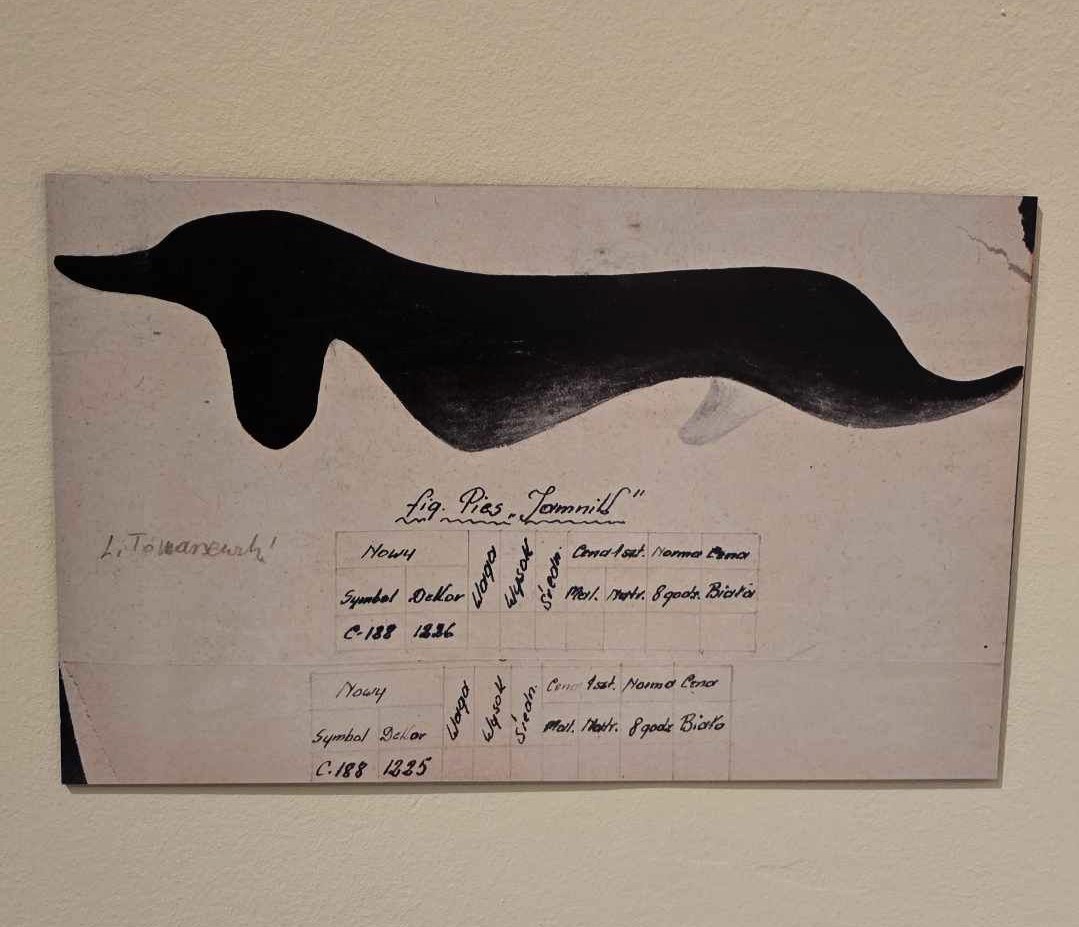 fig. Pies „Jamnik"
Nowy Waga Wysok Średn. Cena 1szt. Norma Cena
Symbol Dekor Mal. Matr. 8 godz. Biała
C-188 1226
Nowy Waga Wysok Średn. Cena 1szt. Norma Cena
Symbol Dekor Mal. Matr. 8 godz Biała
C.188 1225